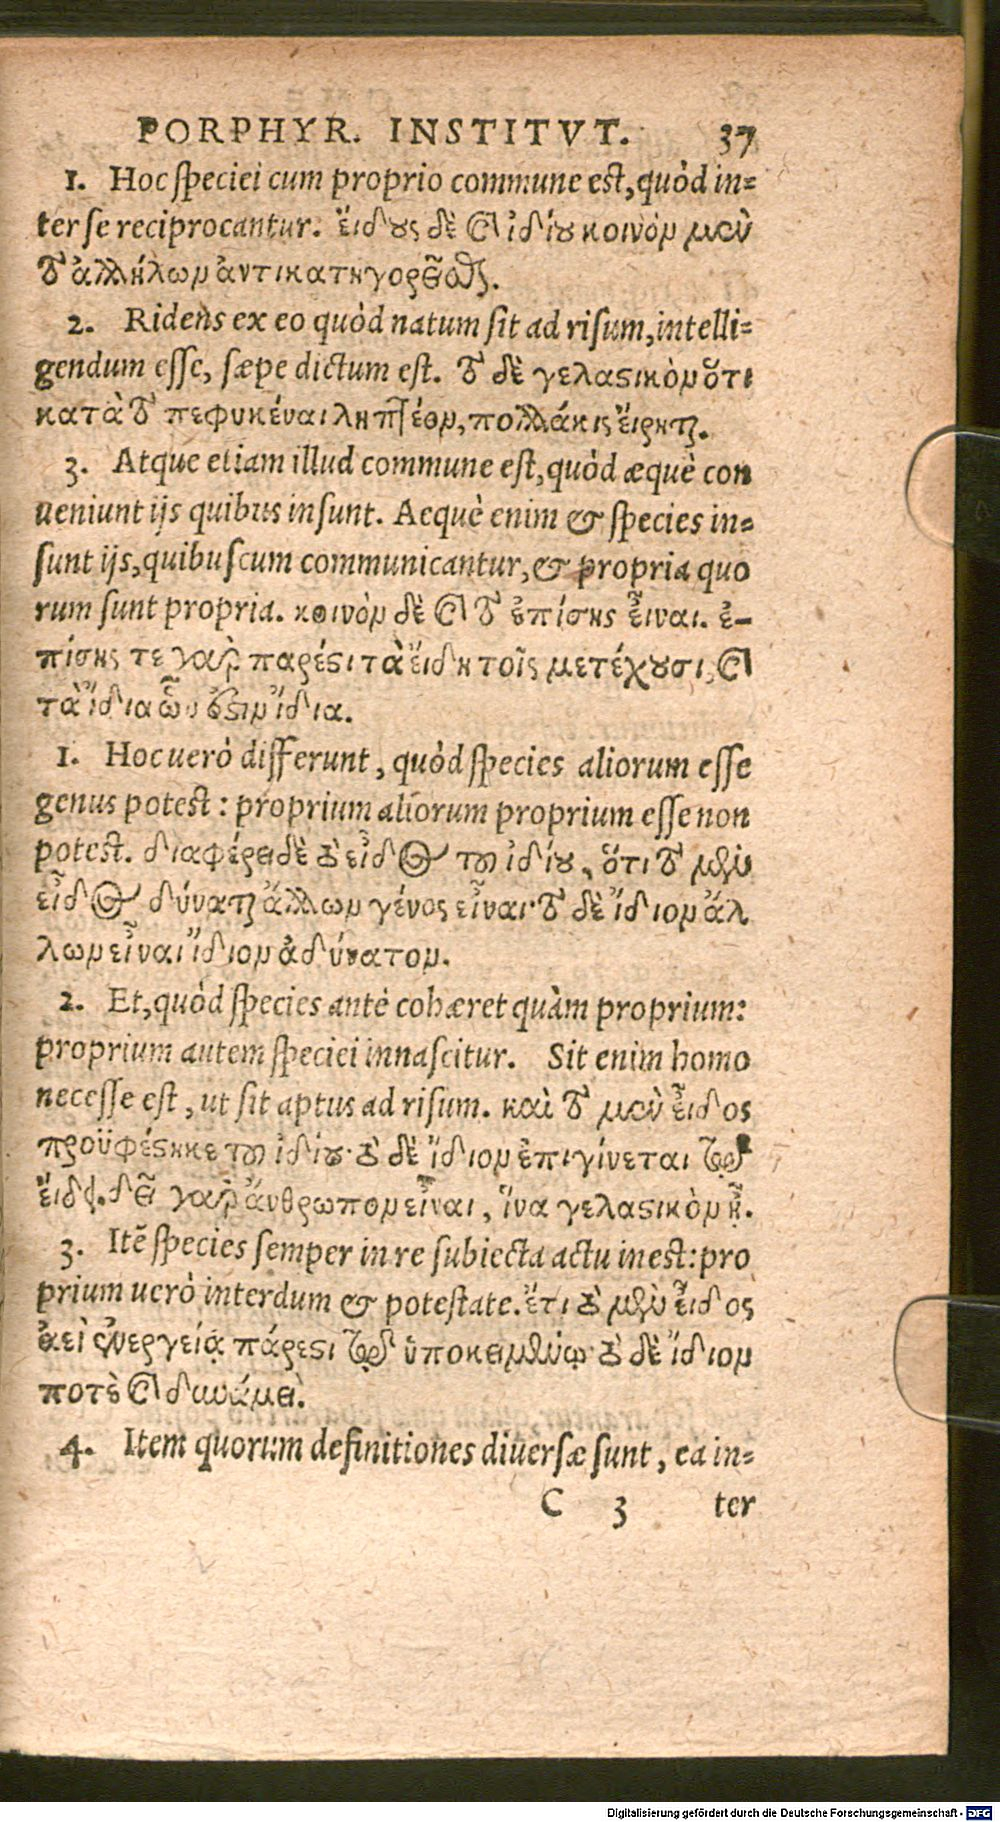 PORPHYR. INSTITVT. 37
1. Hoc speciei cum proprio commune est, quòd in=
ter se reciprocantur. εἴδους δὲ καὶ ἰδίου κοινὸν μὲν
τὸ ἀλλήλων ἀντικατηγορεῖσθαι.
2. Ridens ex eo quòd natum sit ad risum, intelli=
gendum esse, sæpe dictum est. τὸ δὲ γελαστικὸν ὅτι
κατὰ τὸ πεφυκέναι ληπτέον, πολλάκις εἴρηται.
3. Atque etiam illud commune est, quòd æquè con
ueniunt ijs quibus insunt. Aequè enim & species in=
sunt ijs, quibuscum communicantur, & propria quo
rum sunt propria. κοινὸν δὲ καὶ τὸ ἐπίσης εἶναι. ἐ-
πίσης τε γὰρ πάρεστι τὰ εἴδη τοῖς μετέχουσι, καὶ
τὰ ἴδια ὧν ἐστιν ἴδια.
1. Hoc uerò differunt, quòd species aliorum esse
genus potest: proprium aliorum proprium esse non
potest. διαφέρει δὲ τὸ εἶδος τοῦ ἰδίου, ὅτι τὸ μὲν
εἶδος δύναται ἄλλων γένος εἶναι· τὸ δὲ ἴδιον ἄλ
λων εἶναι ἴδιον ἀδύνατον.
2. Et, quòd species antè cohæret quàm proprium:
proprium autem speciei innascitur. Sit enim homo
necesse est, ut sit aptus ad risum. καὶ τὸ μὲν εἶδος
προϋφέστηκε τοῦ ἰδίου· τὸ δὲ ἴδιον ἐπιγίνεται τῷ
εἴδει. δεῖ γὰρ ἄνθρωπον εἶναι, ἵνα γελαστικὸν ᾖ.
3. Itē species semper in re subiecta actu inest: pro
prium uerò interdum & potestate. ἔτι τὸ μὲν εἶδος
ἀεὶ ἐνεργείᾳ πάρεστι τῷ ὑποκειμένῳ· τὸ δὲ ἴδιον
ποτὲ καὶ δυνάμει.
4. Item quorum definitiones diuersæ sunt, ea in=
C 3 ter
Digitalisierung gefördert durch die Deutsche Forschungsgemeinschaft - DFG